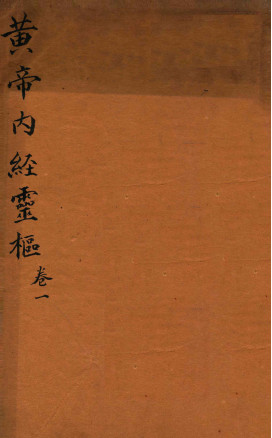 黃帝內經靈樞
卷一